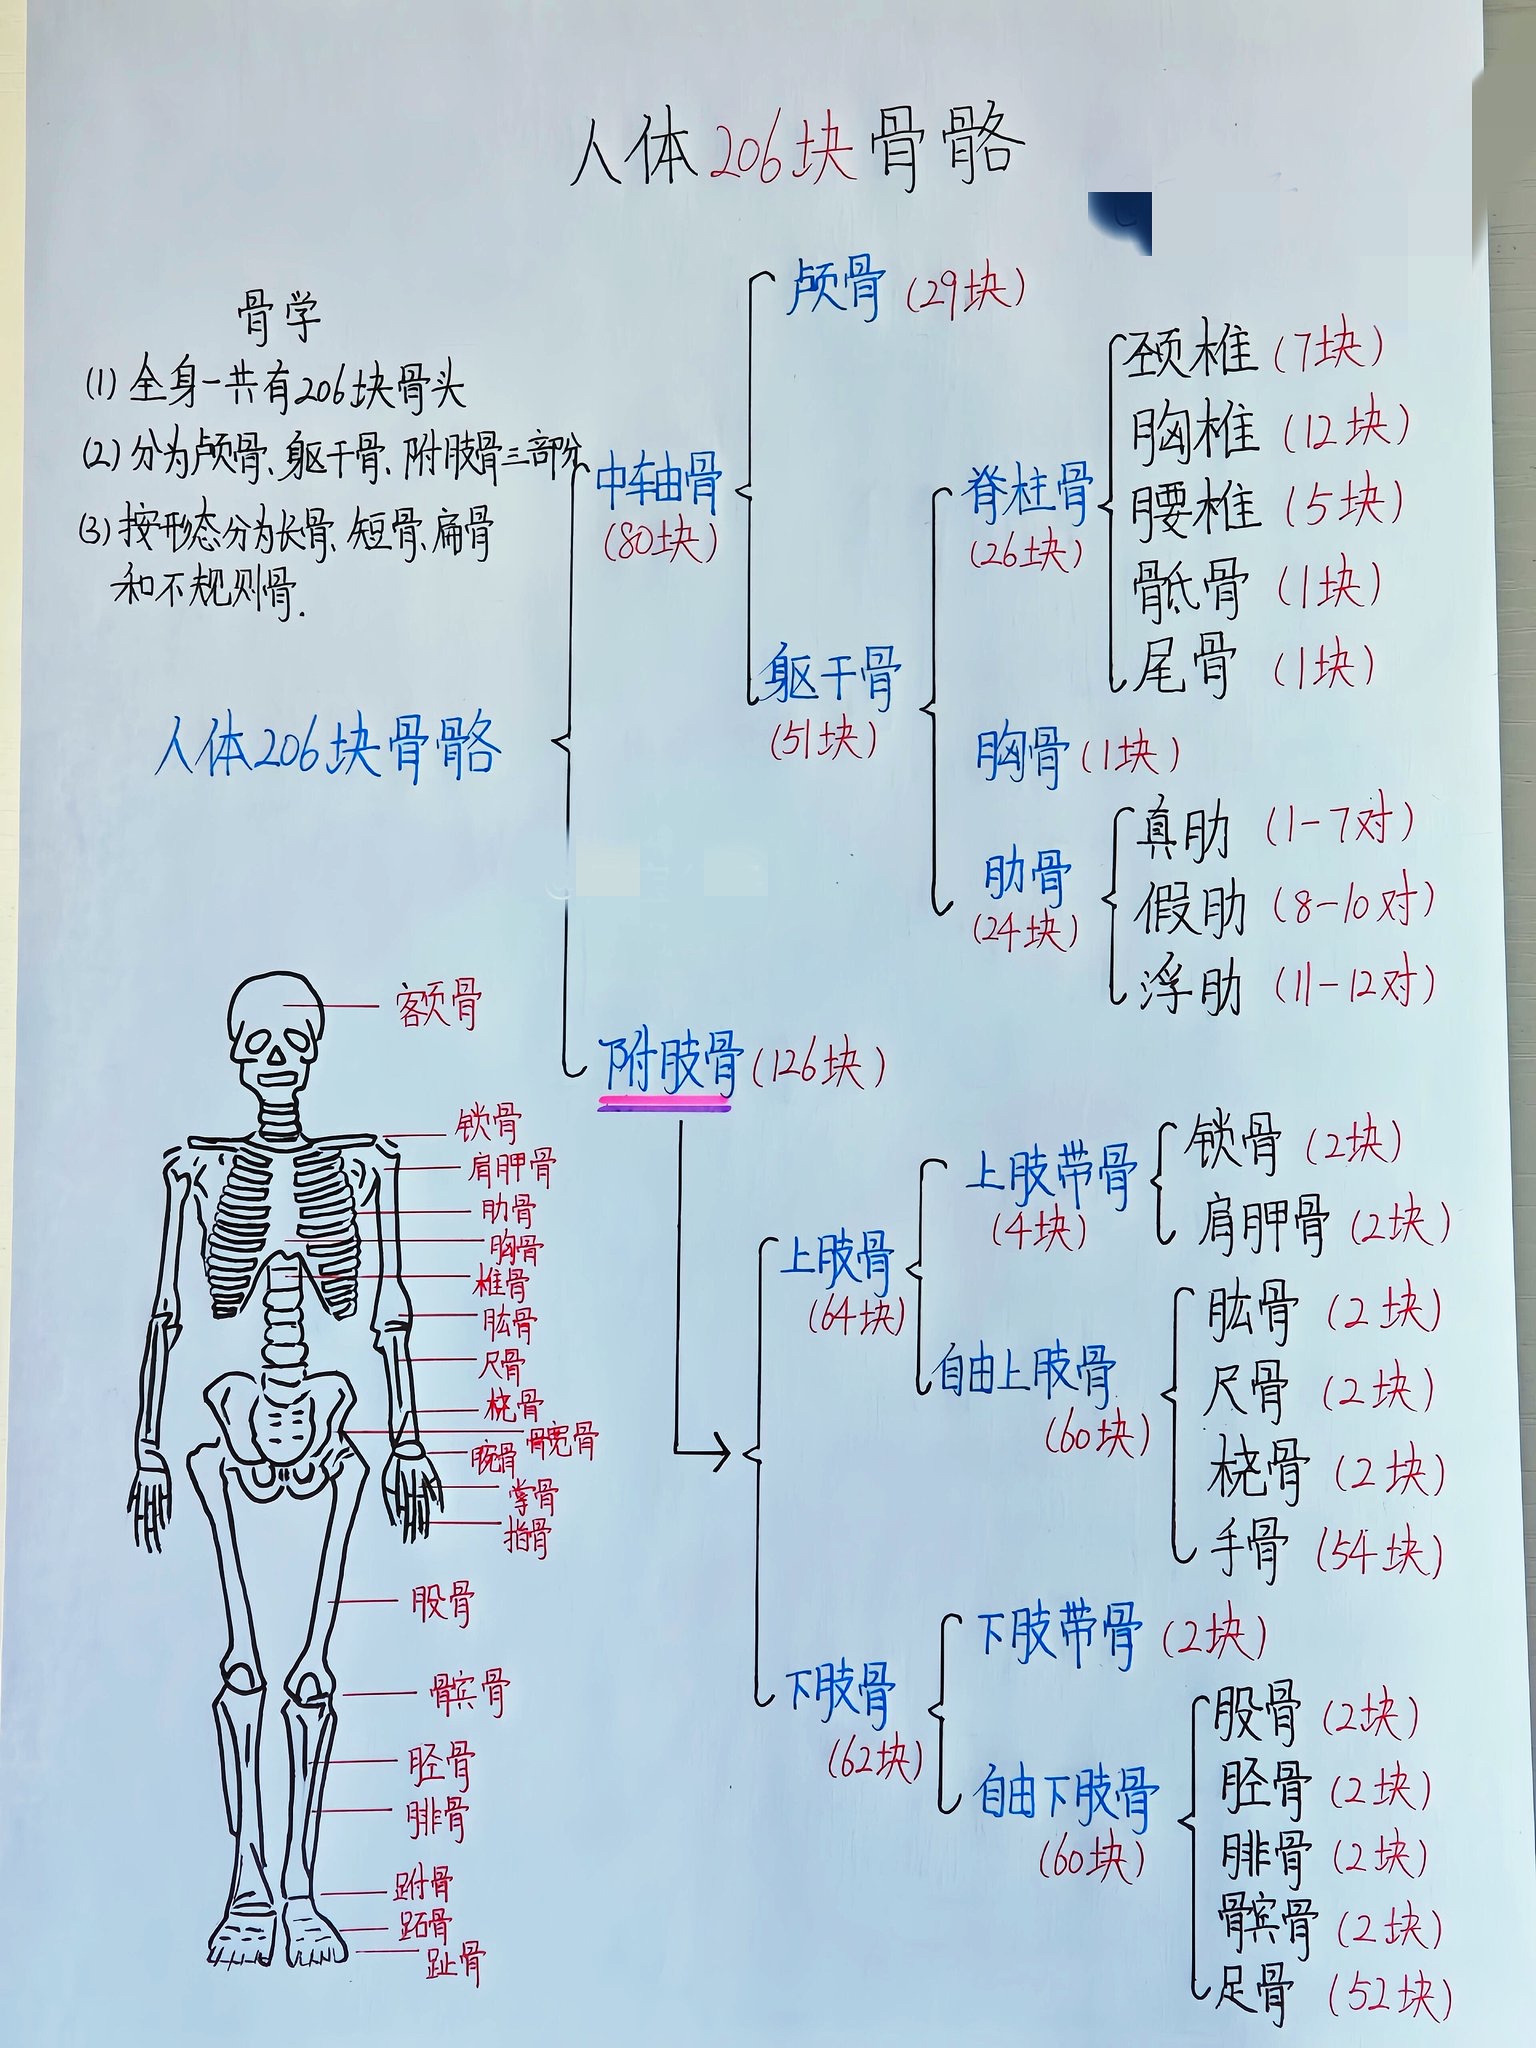 人体206块骨骼
骨学
(1) 全身一共有206块骨头
(2) 分为颅骨、躯干骨、附肢骨三部分
(3) 按形态分为长骨、短骨、扁骨
和不规则骨.
人体206块骨骼
中轴骨
(80块)
颅骨 (29块)
躯干骨
(51块)
脊柱骨
(26块)
颈椎 (7块)
胸椎 (12块)
腰椎 (5块)
骶骨 (1块)
尾骨 (1块)
胸骨 (1块)
肋骨
(24块)
真肋 (1-7对)
假肋 (8-10对)
浮肋 (11-12对)
附肢骨 (126块)
上肢骨
(64块)
上肢带骨
(4块)
锁骨 (2块)
肩胛骨 (2块)
自由上肢骨
(60块)
肱骨 (2块)
尺骨 (2块)
桡骨 (2块)
手骨 (54块)
下肢骨
(62块)
下肢带骨 (2块)
自由下肢骨
(60块)
股骨 (2块)
胫骨 (2块)
腓骨 (2块)
髌骨 (2块)
足骨 (52块)
额骨
锁骨
肩胛骨
肋骨
胸骨
椎骨
肱骨
尺骨
桡骨
髋骨
腕骨
掌骨
指骨
股骨
髌骨
胫骨
腓骨
跗骨
跖骨
趾骨